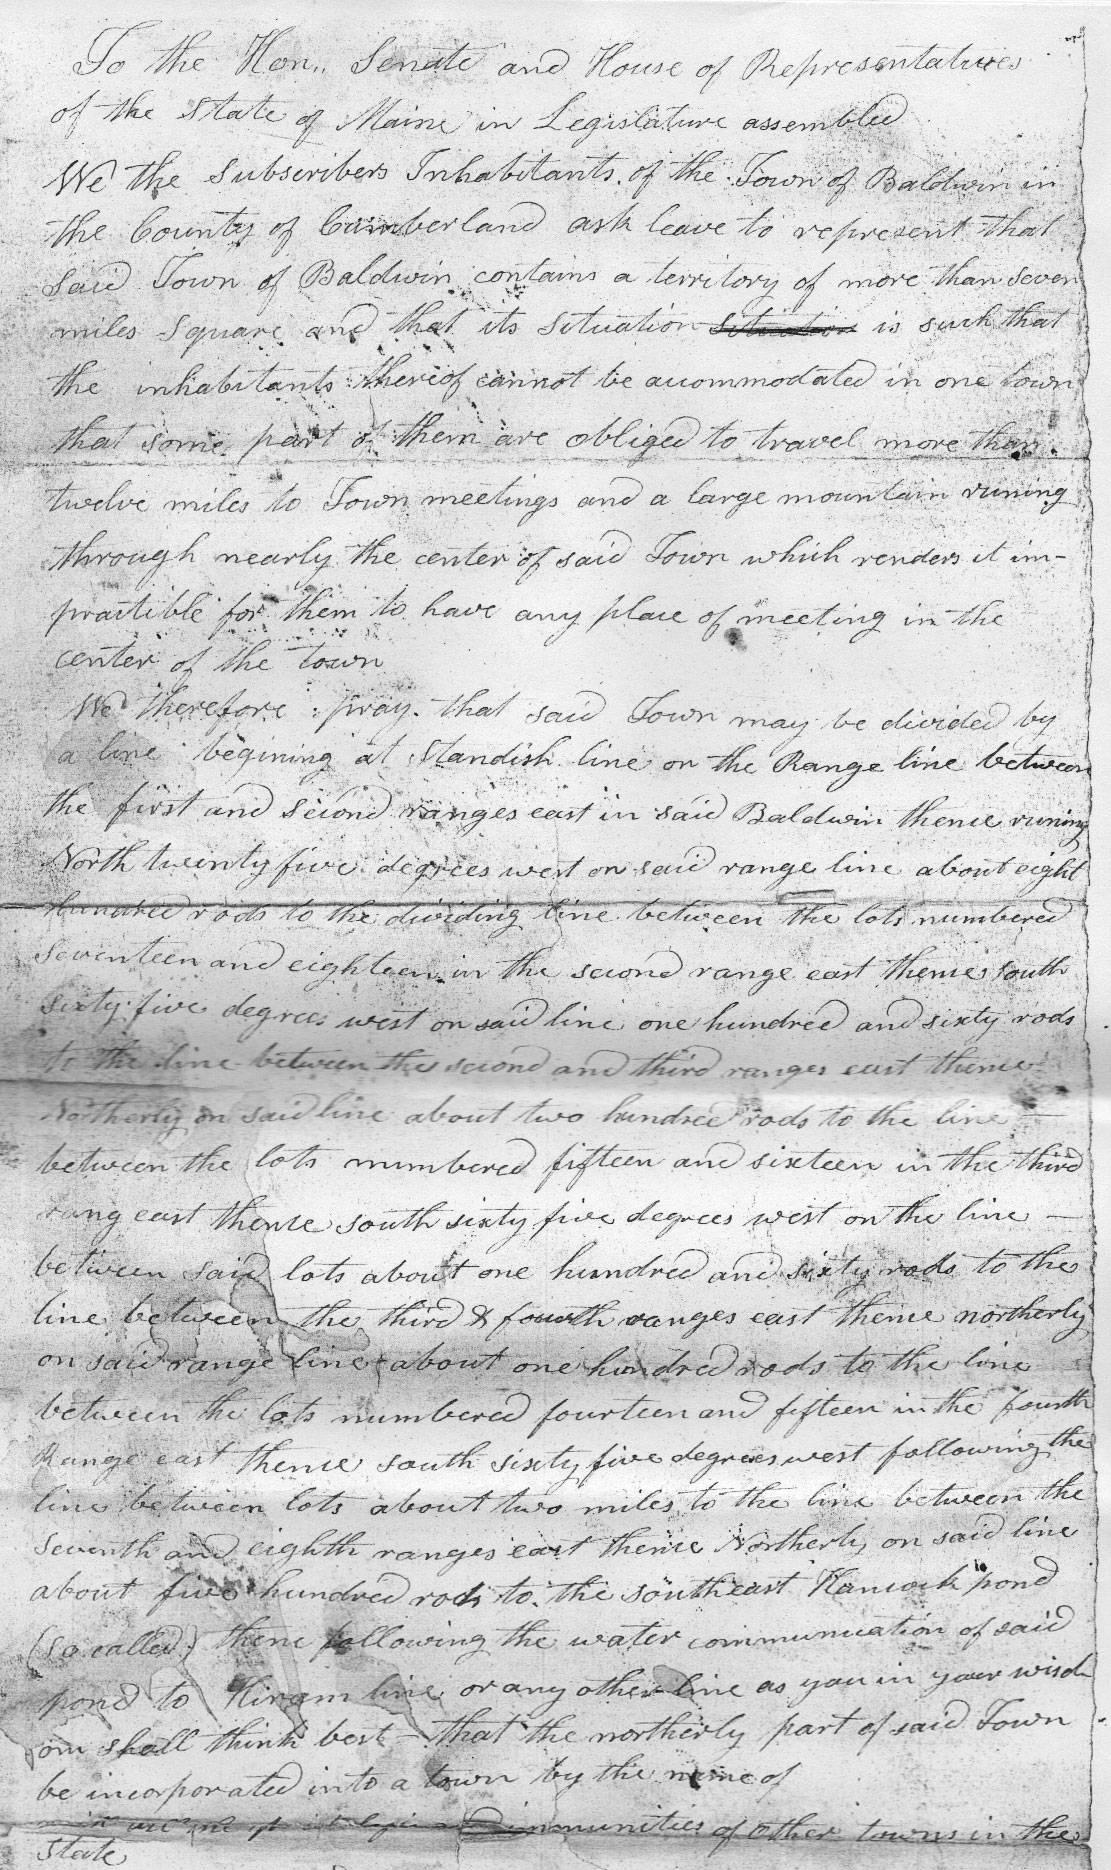 To the Hon,, Senate and House of Representatives
of the State of Maine in Legislature assembled
We the Subscribers Inhabitants of the Town of Baldwin in
the County of Cumberland ask leave to represent that
said Town of Baldwin contains a territory of more than seven
miles square and that its situation situation is such that
the inhabitants thereof cannot be acommodated in one town
that some part of them are obliged to travel more than
twelve miles to Town meetings and a large mountain runing
through nearly the center of said Town which renders it im-
practible for them to have any place of meeting in the
center of the town
We therefore pray that said Town may be divided by
a line begining at Standish line on the Range line between
the first and second ranges east in said Baldwin thence runing
North twenty five degrees west on said range line about eight
Hundred rods to the dividing line between the lots numbered
seventeen and eighteen in the second range east thence south
sixty five degrees west on said line one hundred and sixty rods
to the line between the second and third ranges east thence
Northerly on said line about two hundred rods to the line —
between the lots numbered fifteen and sixteen in the third
rang east thence south sixty five degrees west on the line —
between said lots about one hundred and sixty rods to the
line between the third & fourth ranges east thence northerly
on said range line about one hundred rods to the line
between the lots numbered fourteen and fifteen in the fourth
Range east thence south sixty five degrees west following the
line between lots about two miles to the line between the
seventh and eighth ranges east thence Northerly on said line
about five hundred rods to the southeast Hancock pond
(so called) thence following the water communication of said
pond to Hiram line or any other line as you in your wisd
om shall think best — that the northerly part of said Town
be incorporated into a town by the name of
immunities of other towns in the
State